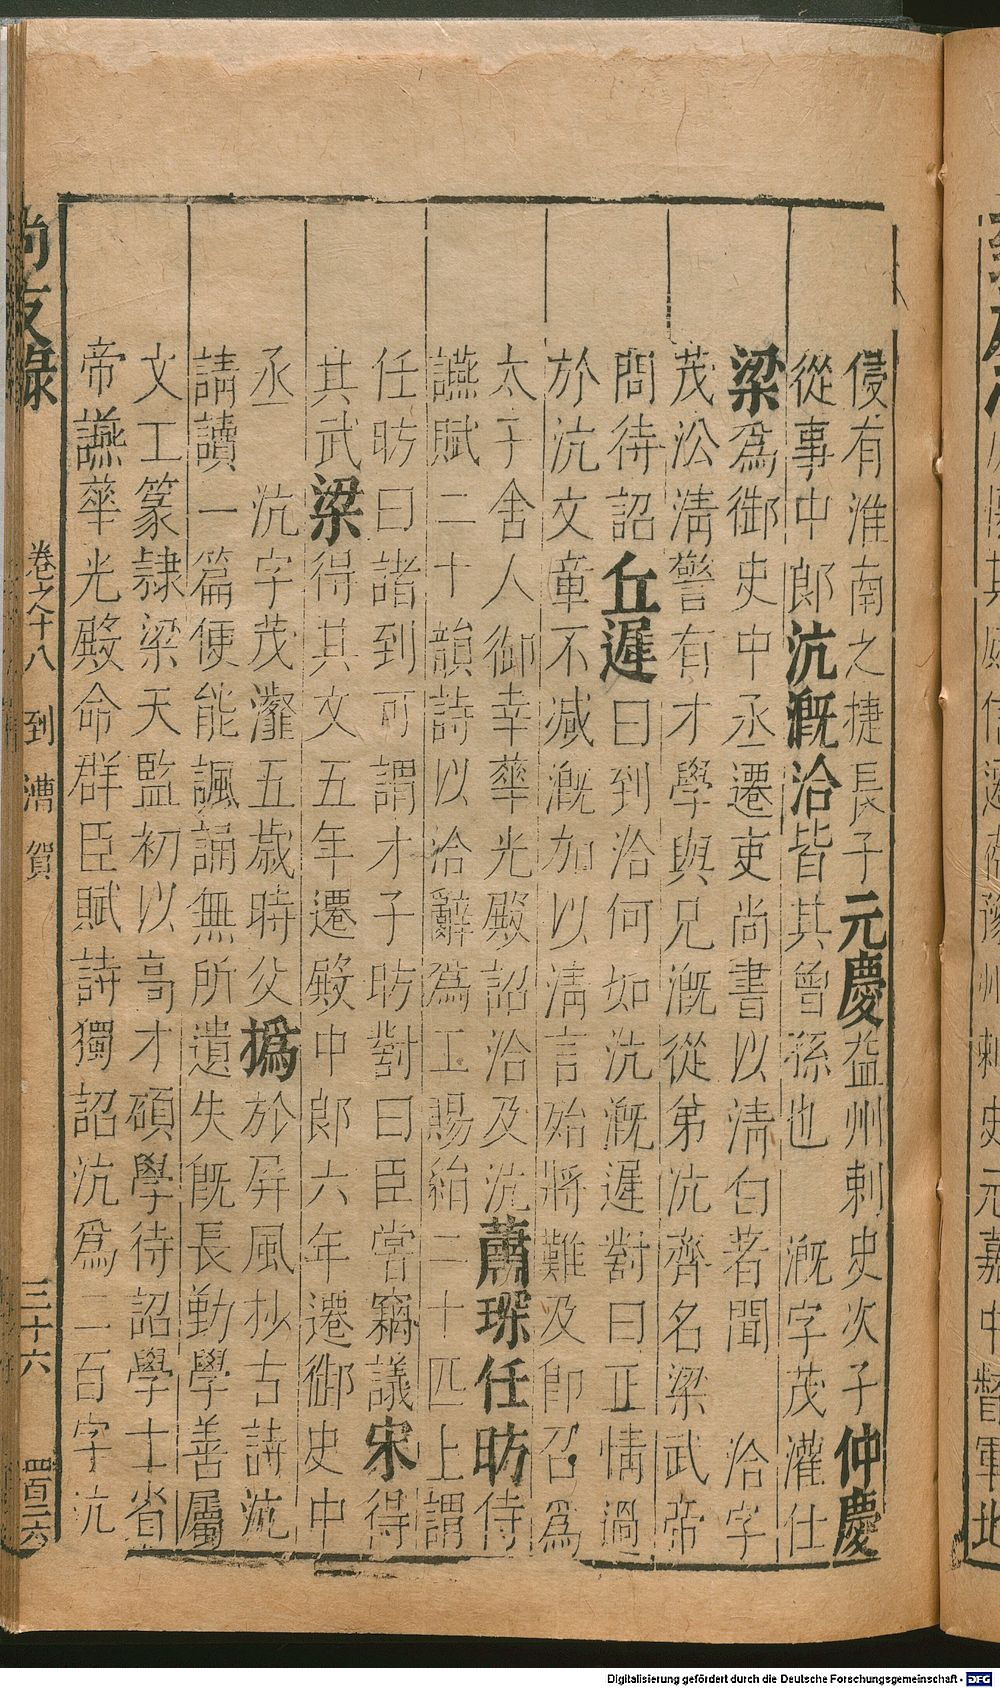 侵有淮南之捷長子元慶益州刺史次子仲慶
從事中郎沆溉洽皆其曾孫也 溉字茂灌仕
梁為御史中丞遷吏尚書以淸白著聞 洽字
茂㳂淸警有才學與兄溉從弟沆齊名梁武帝
問待詔丘遲曰到洽何如沆溉遲對曰正情過
於沆文章不减溉加以淸言殆將難及卽召為
太子舍人御幸華光殿詔洽及沆蕭琛任昉侍
讌賦二十韻詩以洽辭為工賜紿二十匹上謂
任昉曰諸到可謂才子昉對曰臣嘗竊議宋得
其武梁得其文五年遷殿中郎六年遷御史中
丞 沆字茂瀣五歲時父撝於屛風抄古詩沆
請讀一篇便能諷誦無所遺失旣長勤學善屬
文工篆隷梁天監初以高才碩學待詔學士省
帝讌華光殿命群臣賦詩獨詔沆爲二百字沆
尚友錄 卷之十八 到 漕 賀 三十六 四百二六